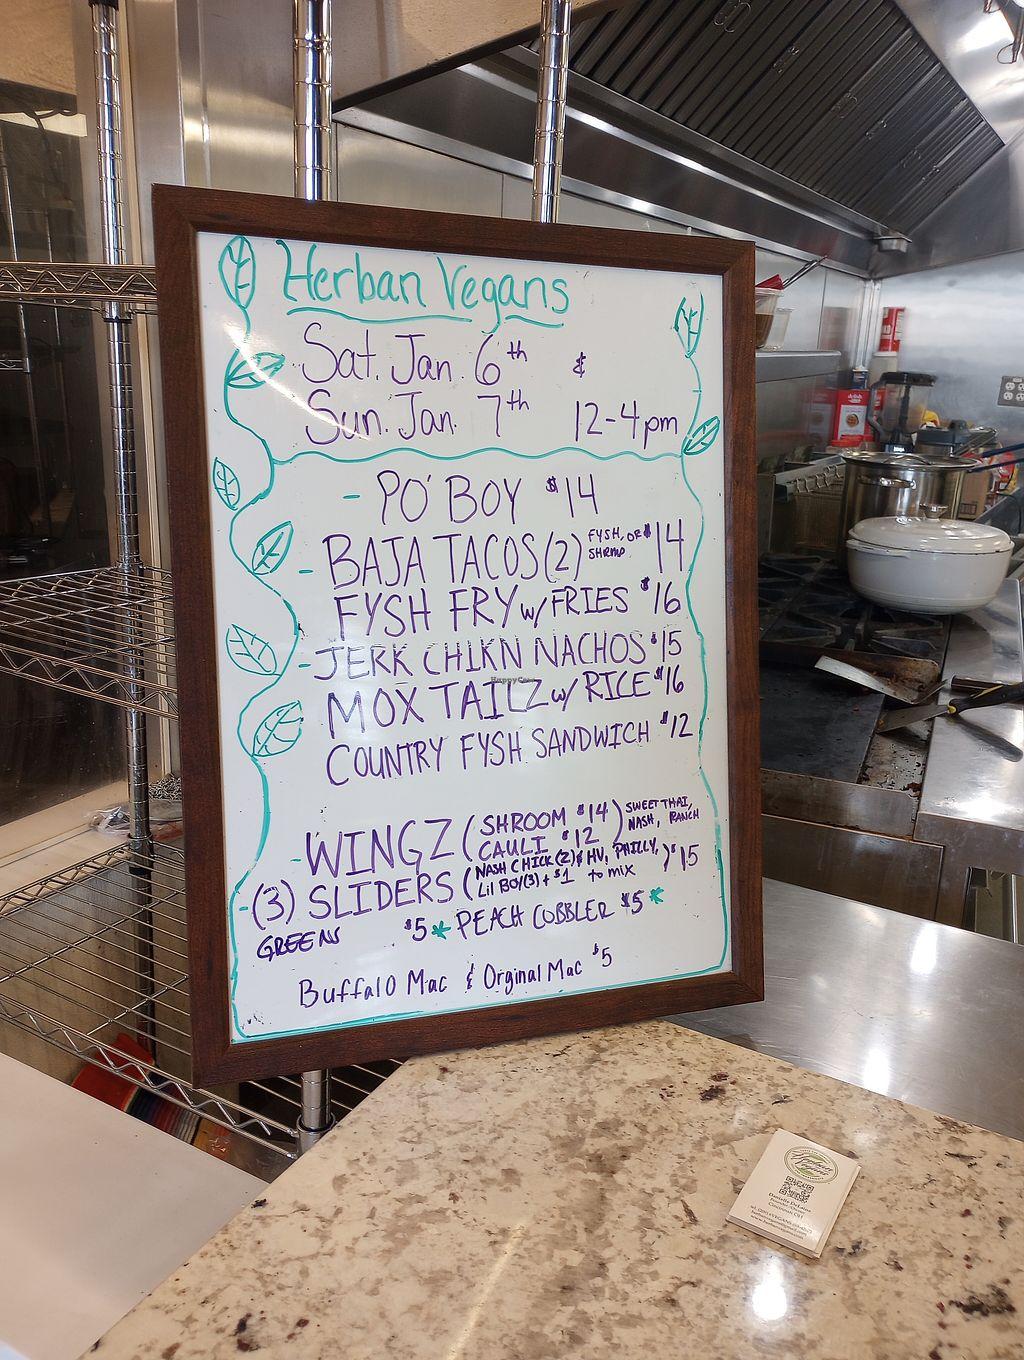 Herban Vegans
Sat. Jan. 6th &
Sun. Jan. 7th 12-4pm
- PO' BOY $14
- BAJA TACOS (2) FYSH, OR SHRMP $14
FYSH FRY w/ FRIES $16
- JERK CHIKN NACHOS $15
MOX TAILZ w/ RICE $16
COUNTRY FYSH SANDWICH $12
- WINGZ (SHROOM $14 CAULI $12) SWEET THAI, NASH, RANCH
- (3) SLIDERS (NASH CHICK (2) & HV, PHILLY, Lil BOY(3) + $1 to mix) $15
GREENS $5 * PEACH COBBLER $5 *
Buffalo Mac & Orginal Mac $5
HappyCow
Herban Vegans